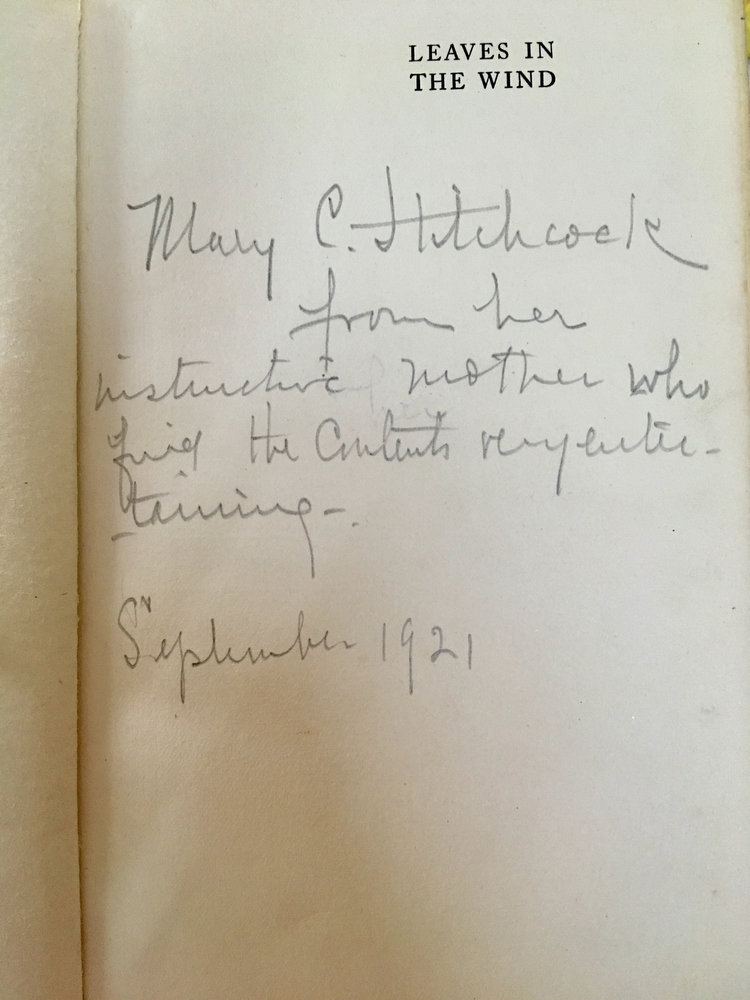 LEAVES IN
THE WIND
Mary C. Hitchcock
from her
instructive mother who
find the Contents very enter-
-taining-.
September 1921